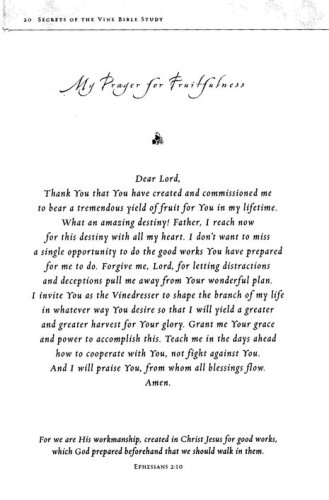 20 Secrets of the Vine Bible Study
My Prayer for Fruitfulness
Dear Lord,
Thank You that You have created and commissioned me
to bear a tremendous yield of fruit for You in my lifetime.
What an amazing destiny! Father, I reach now
for this destiny with all my heart. I don't want to miss
a single opportunity to do the good works You have prepared
for me to do. Forgive me, Lord, for letting distractions
and deceptions pull me away from Your wonderful plan.
I invite You as the Vinedresser to shape the branch of my life
in whatever way You desire so that I will yield a greater
and greater harvest for Your glory. Grant me Your grace
and power to accomplish this. Teach me in the days ahead
how to cooperate with You, not fight against You.
And I will praise You, from whom all blessings flow.
Amen.
For we are His workmanship, created in Christ Jesus for good works,
which God prepared beforehand that we should walk in them.
Ephesians 2:10